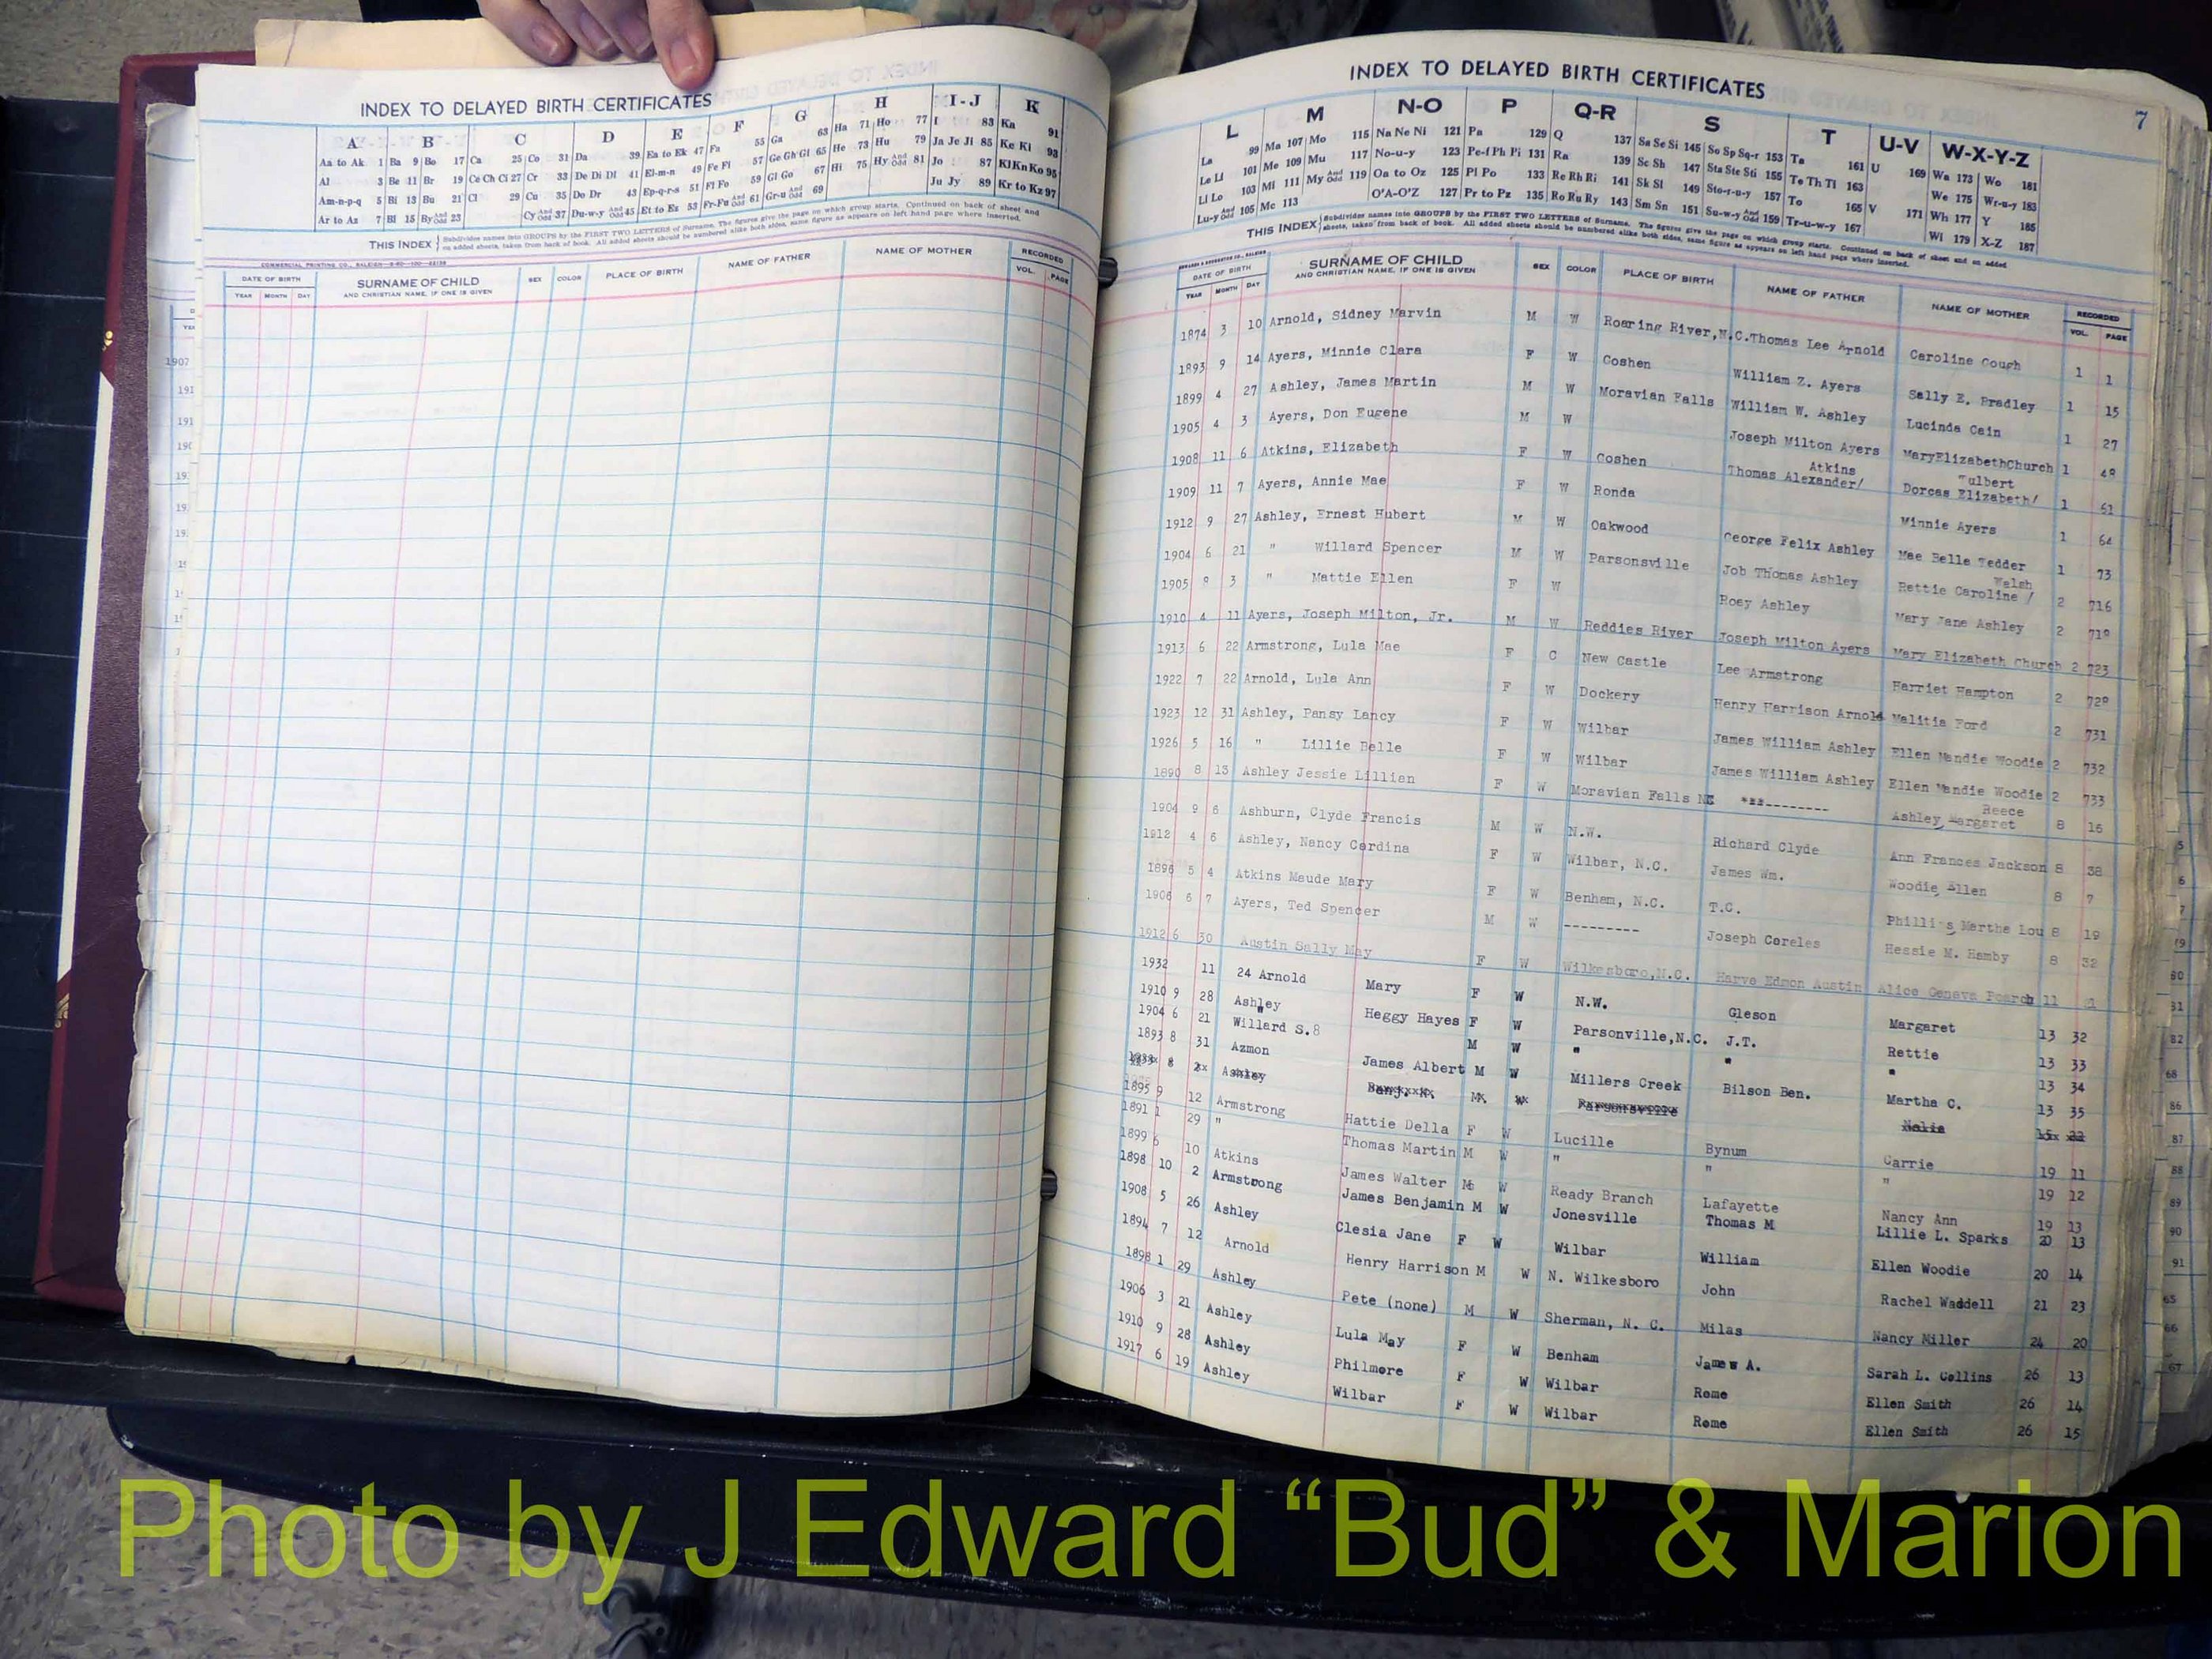 INDEX TO DELAYED BIRTH CERTIFICATES
A B C D E F G H I-J K
Aa to Ak 1 Ba 9 Bo 17 Ca 25 Co 31 Da 39 Ea to Ek 47 Fa 55 Ga 63 Ha 71 Ho 77 I 83 Ka 91
Al 3 Be 11 Br 19 Ce Ch Ci 27 Cr 33 De Di Dl 41 El-m-n 49 Fe Fi 57 Ge Gh Gi 65 He 73 Hu 79 Ja Je Ji 85 Ke Ki 93
Am-n-p-q 5 Bi 13 Bu 21 Cl 29 Cu 35 Do Dr 43 Ep-q-r-s 51 Fl Fo 59 Gl Go 67 Hi 75 Hy And Odd 81 Jo 87 Kl Kn Ko 95
Ar to Az 7 Bl 15 By And Odd 23 Cy And Odd 37 Du-w-y And Odd 45 Et to Ez 53 Fr-Fu And Odd 61 Gr-u And Odd 69 Ju Jy 89 Kr to Kz 97
THIS INDEX Subdivides names into GROUPS by the FIRST TWO LETTERS of Surname. The figures give the page on which group starts. Continued on back of sheet and
on added sheets, taken from back of book. All added sheets should be numbered alike both sides, same figure as appears on left hand page where inserted.
DATE OF BIRTH SURNAME OF CHILD SEX COLOR PLACE OF BIRTH NAME OF FATHER NAME OF MOTHER RECORDED
YEAR MONTH DAY AND CHRISTIAN NAME, IF ONE IS GIVEN VOL. PAGE
1907
7
INDEX TO DELAYED BIRTH CERTIFICATES
L M N-O P Q-R S T U-V W-X-Y-Z
La 99 Ma 107 Mo 115 Na Ne Ni 121 Pa 129 Q 137 Sa Se Si 145 So Sp Sq-r 153 Ta 161 U 169 Wa 173 Wo 181
Le Li 101 Me 109 Mu 117 No-u-y 123 Pe-f Ph Pi 131 Ra 139 Sc Sh 147 Sta Ste Sti 155 Te Th Ti 163 We 175 Wr-u-y 183
Ll Lo 103 Mi 111 My And Odd 119 Oa to Oz 125 Pl Po 133 Re Rh Ri 141 Sk Sl 149 Sto-r-u-y 157 To 165 V 171 Wh 177 Y 185
Lu-y And Odd 105 Mc 113 O'A-O'Z 127 Pr to Pz 135 Ro Ru Ry 143 Sm Sn 151 Su-w-y And Odd 159 Tr-u-w-y 167 Wi 179 X-Z 187
THIS INDEX Subdivides names into GROUPS by the FIRST TWO LETTERS of Surname. The figures give the page on which group starts. Continued on back of sheet and on added
sheets, taken from back of book. All added sheets should be numbered alike both sides, same figure as appears on left hand page where inserted.
DATE OF BIRTH SURNAME OF CHILD SEX COLOR PLACE OF BIRTH NAME OF FATHER NAME OF MOTHER RECORDED
YEAR MONTH DAY AND CHRISTIAN NAME, IF ONE IS GIVEN VOL. PAGE
1874 3 10 Arnold, Sidney Marvin M W Roaring River, N.C. Thomas Lee Arnold Caroline Gough 1 1
1893 9 14 Ayers, Minnie Clara F W Goshen William Z. Ayers Sally E. Bradley 1 15
1899 4 27 Ashley, James Martin M W Moravian Falls William W. Ashley Lucinda Cain 1 27
1905 4 3 Ayers, Don Eugene M W Joseph Milton Ayers MaryElizabethChurch 1 48
1908 11 6 Atkins, Elizabeth F W Goshen Thomas Alexander/ Atkins Dorcas Elizabeth/ Tulbert 1 61
1909 11 7 Ayers, Annie Mae F W Ronda Minnie Ayers 1 64
1912 9 27 Ashley, Ernest Hubert M W Oakwood George Felix Ashley Mae Belle Tedder 1 73
1904 6 21 " Willard Spencer M W Parsonsville Job Thomas Ashley Rettie Caroline / Welsh 2 716
1905 8 3 " Mattie Ellen F W Roey Ashley Mary Jane Ashley 2 719
1910 4 11 Ayers, Joseph Milton, Jr. M W Reddies River Joseph Milton Ayers Mary Elizabeth Church 2 723
1913 6 22 Armstrong, Lula Mae F C New Castle Lee Armstrong Harriet Hampton 2 728
1922 7 22 Arnold, Lula Ann F W Dockery Henry Harrison Arnold Malitia Ford 2 731
1923 12 31 Ashley, Pansy Lancy F W Wilbar James William Ashley Ellen Mandie Woodie 2 732
1926 5 16 " Lillie Belle F W Wilbar James William Ashley Ellen Mandie Woodie 2 733
1890 8 13 Ashley Jessie Lillian F W Moravian Falls NC --------- Ashley, Margaret Reece 8 16
1904 9 6 Ashburn, Clyde Francis M W N.W. Richard Clyde Ann Frances Jackson 8 38
1912 4 6 Ashley, Nancy Cardina F W Wilbar, N.C. James Wm. Woodie, Ellen 8 7
1896 5 4 Atkins Maude Mary F W Benham, N.C. T.C. Phillips Martha Lou 8 19
1906 6 7 Ayers, Ted Spencer M W --------- Joseph Coreles Hessie M. Hamby 8 32
1912 6 30 Austin Sally May F W Wilkesboro, N.C. Harve Edmon Austin Alice Geneva Pearch 11
1932 11 24 Arnold Mary F W N.W. Gleson Margaret 13 32
1910 9 28 Ashley Heggy Hayes F W Parsonville, N.C. J.T. Rettie 13 33
1904 6 21 " Willard S.8 M W " " " 13 34
1893 8 31 Azmon James Albert M W Millers Creek Bilson Ben. Martha C. 13 35
Ashley Benj. Parsonsville
1895 9 12 Armstrong Hattie Della F W Lucille Bynum Carrie 19 11
1891 1 29 " Thomas Martin M W " " " 19 12
1899 6 10 Atkins James Walter M W Ready Branch Lafayette Nancy Ann 19 13
1898 10 2 Armstrong James Benjamin M W Jonesville Thomas M Lillie L. Sparks 20 13
1908 5 26 Ashley Clesia Jane F W Wilbar William Ellen Woodie 20 14
1894 7 12 Arnold Henry Harrison M W N. Wilkesboro John Rachel Waddell 21 23
1898 1 29 Ashley Pete (none) M W Sherman, N. C. Milas Nancy Miller 24 20
1906 3 21 Ashley Lula May F W Benham James A. Sarah L. Collins 26 13
1910 9 28 Ashley Philmore F W Wilbar Rome Ellen Smith 26 14
1917 6 19 Ashley Wilbar F W Wilbar Rome Ellen Smith 26 15
Photo by J Edward “Bud” & Marion